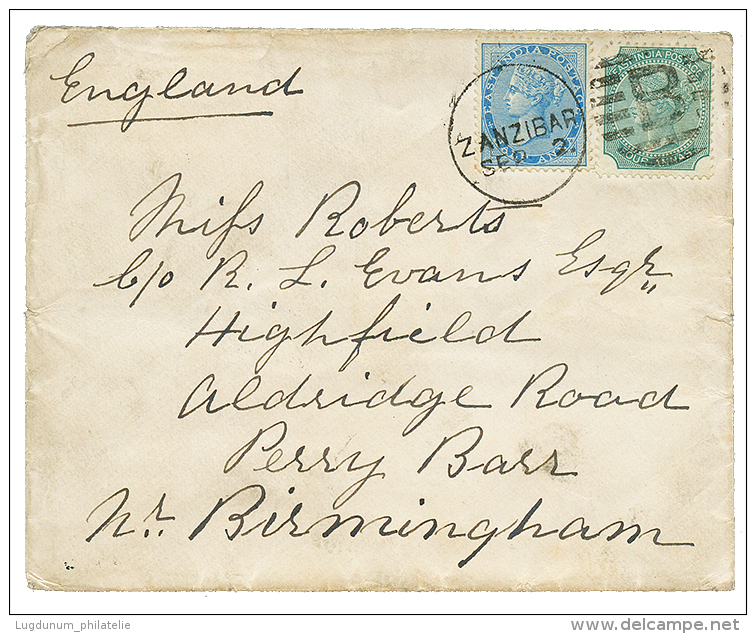 England
EAST INDIA POSTAGE
ZANZIBAR
SEP 3.
INDIA
B
Miss Roberts
c/o R. L. Evans Esqr.
Highfield
Aldridge Road
Perry Barr
Nr. Birmingham
Lugdunum_philatelie
delcampe.net